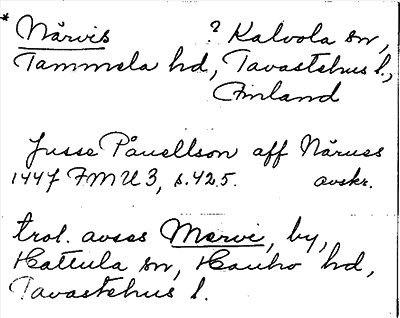 * Nårvis ? Kalvola sn,
Tammela hd, Tavastehus l.,
Finland
Jusse Påuellson aff Näruss
1447 FMU 3, s. 425. avskr.
trol. avses Mervi, by,
Hattula sn, Hauho hd,
Tavastehus l.